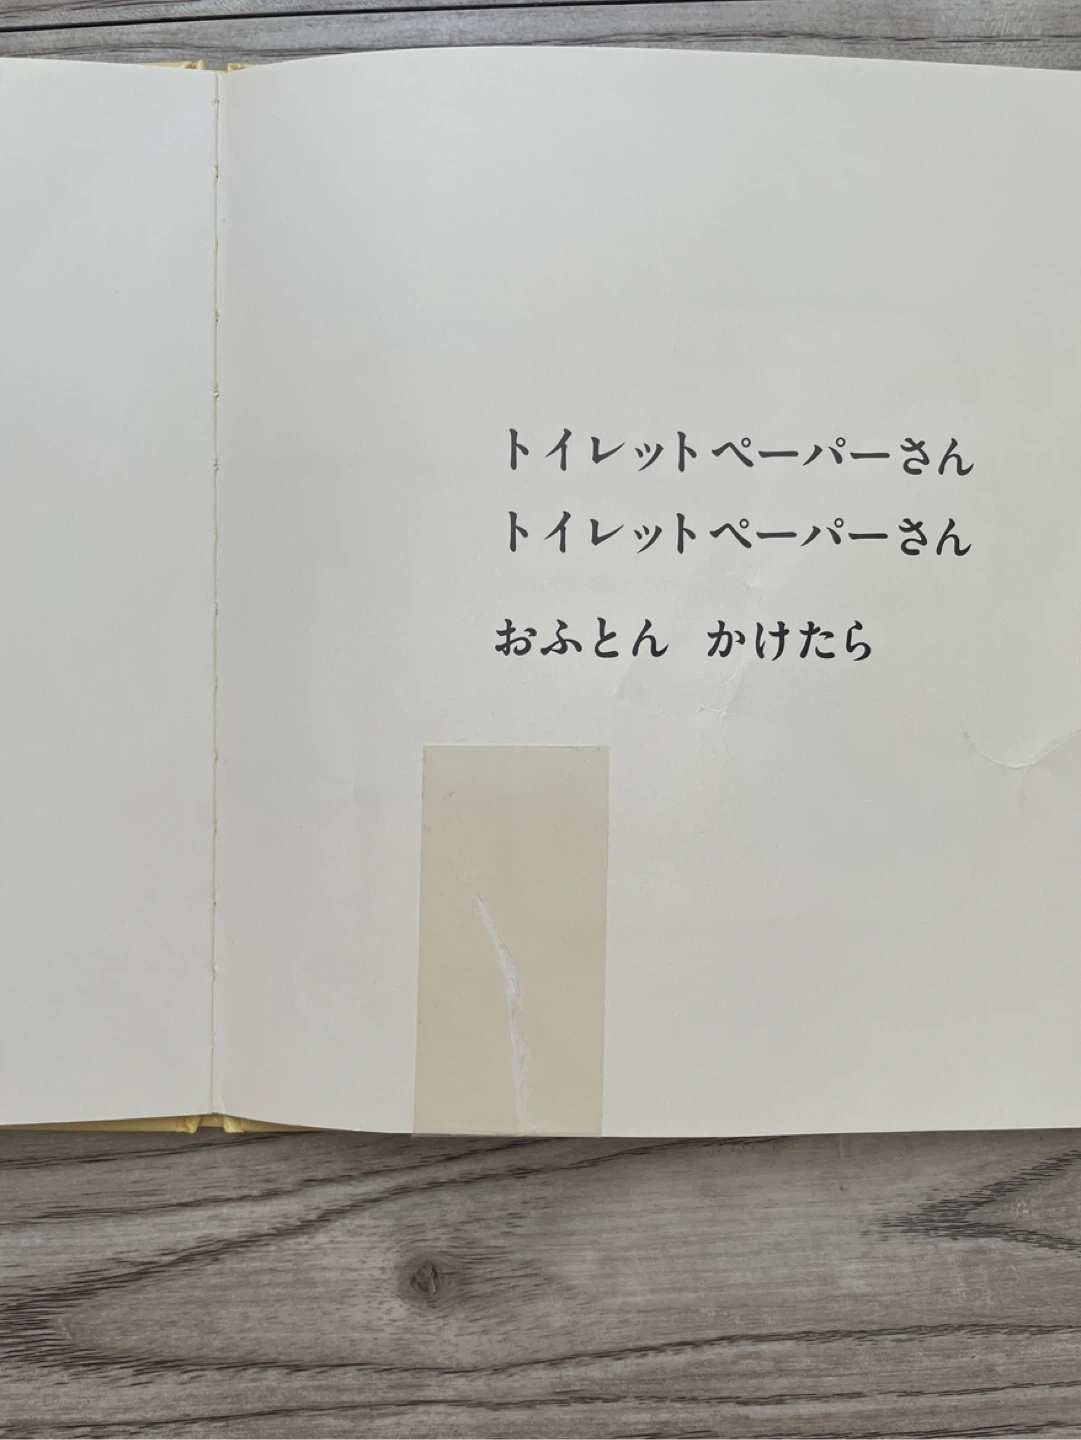 トイレットペーパーさん
トイレットペーパーさん
おふとん かけたら